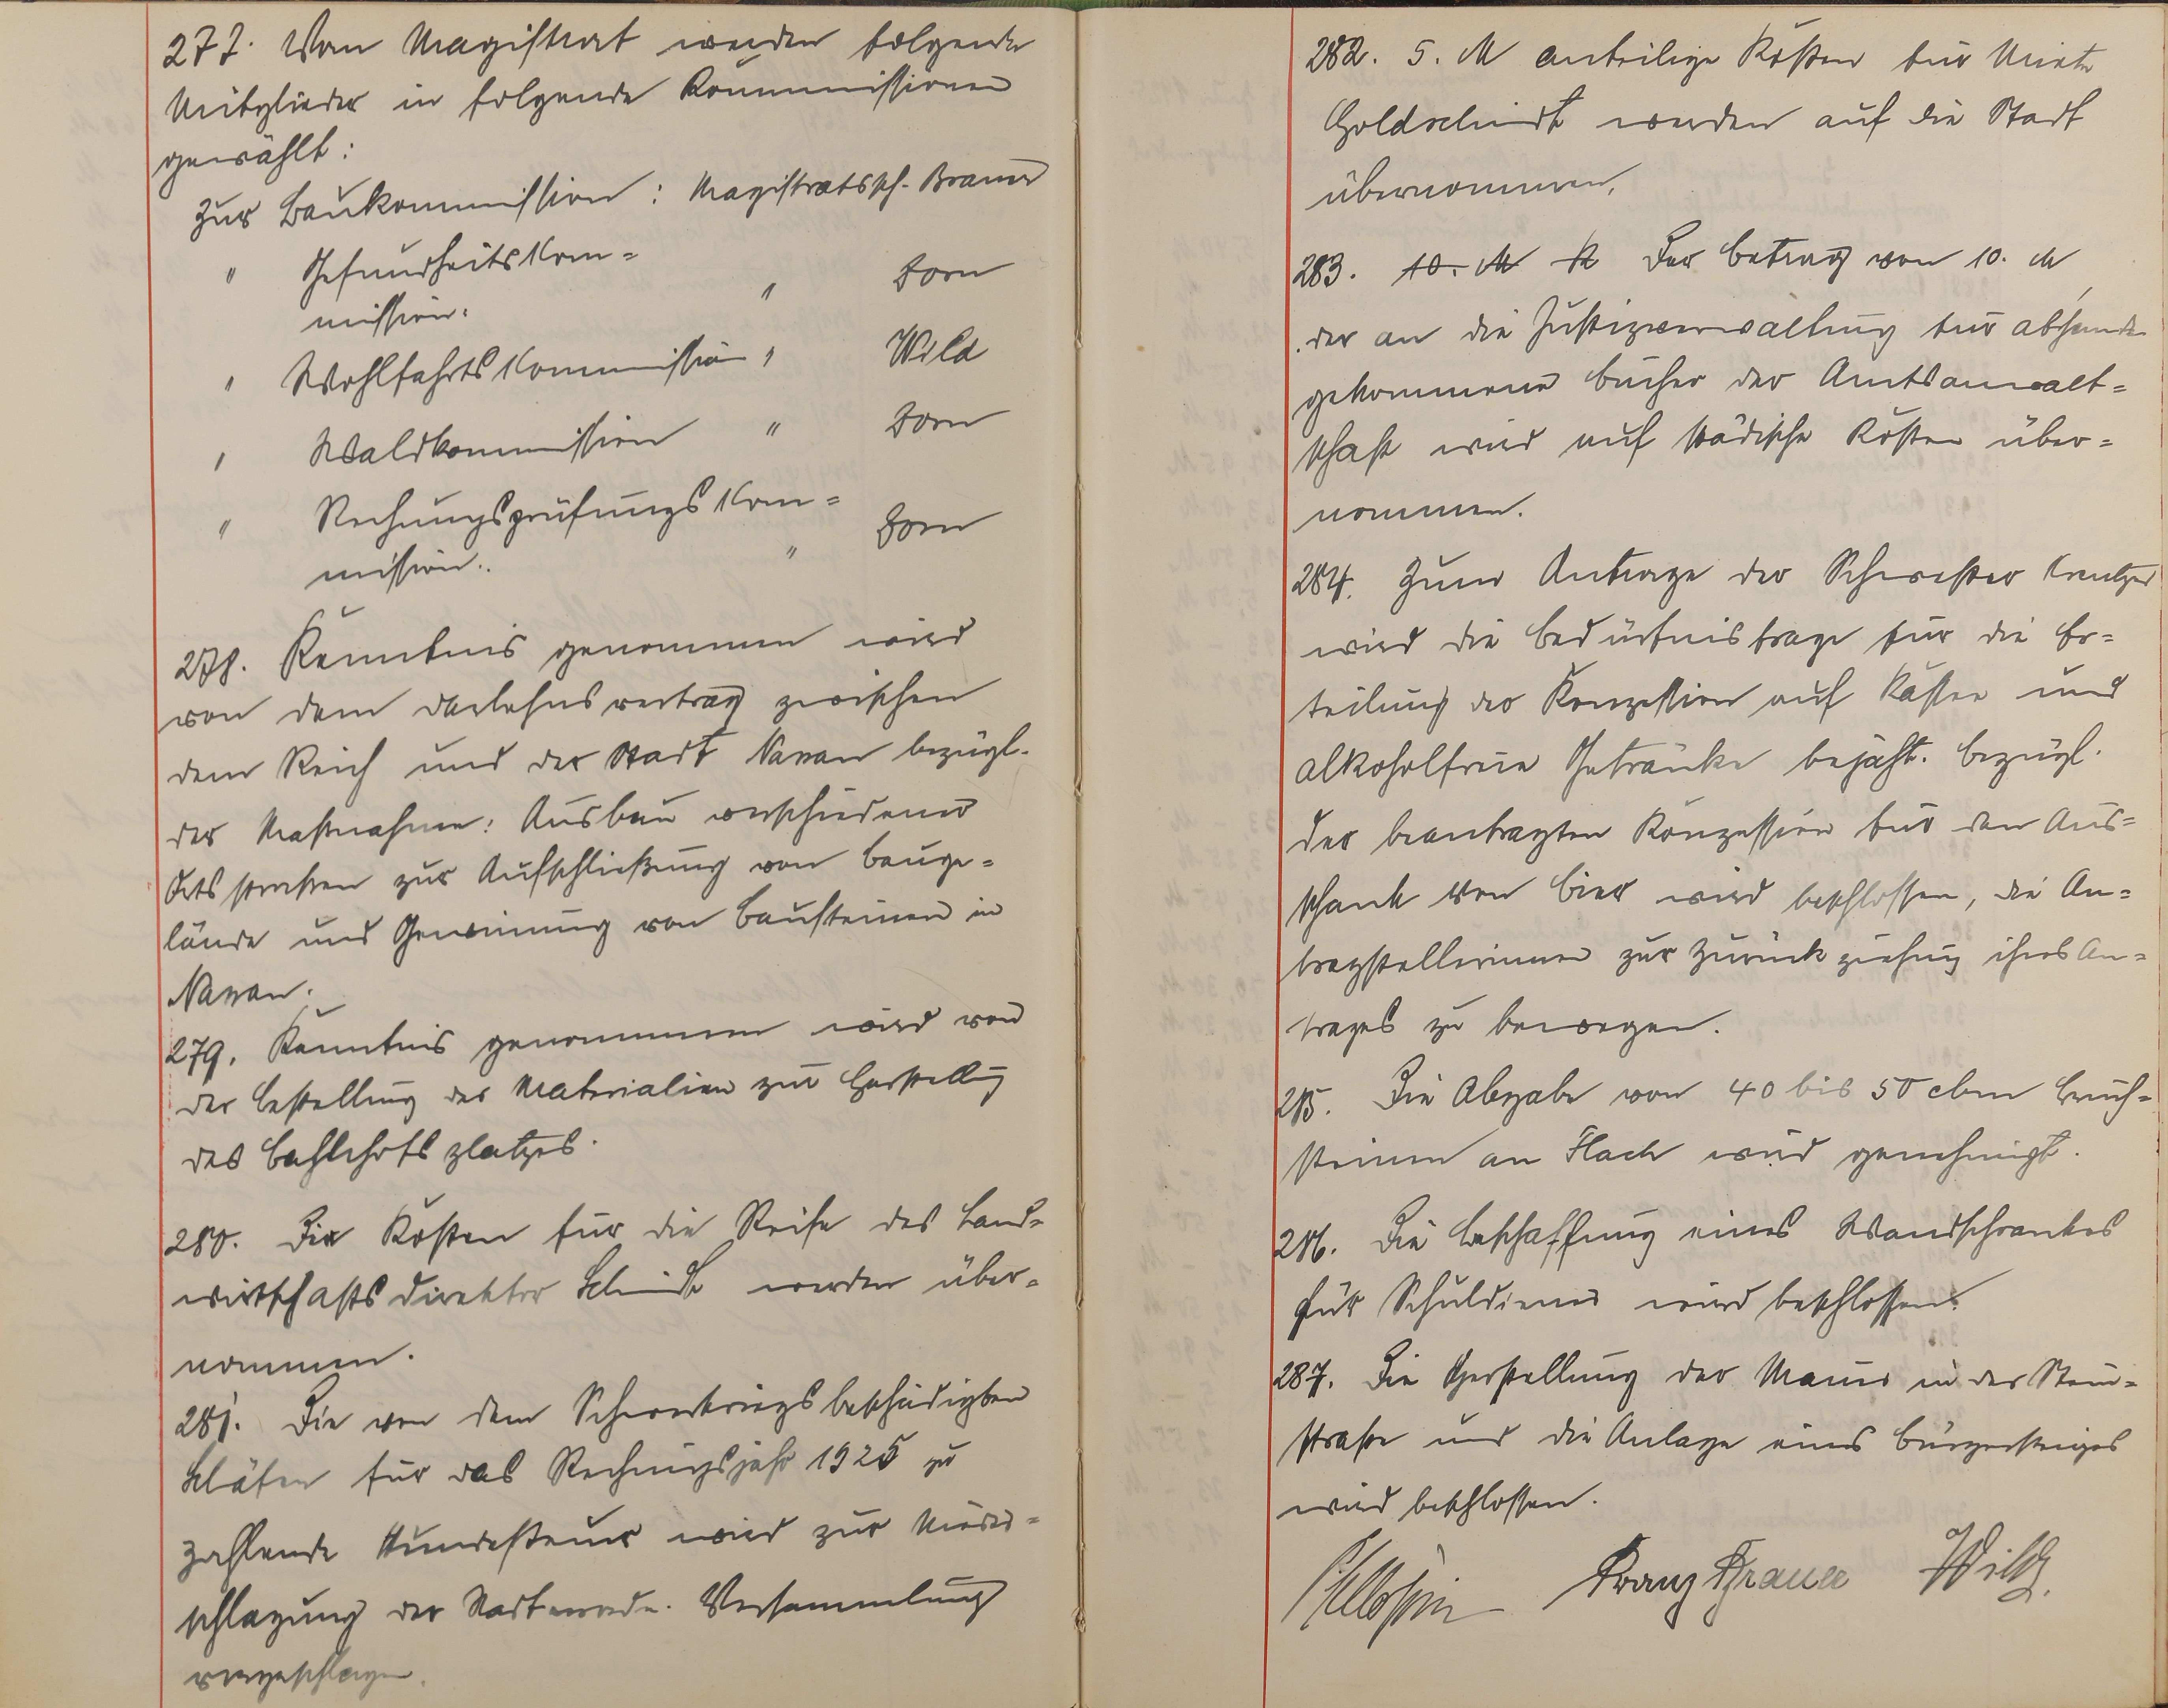 277. Vom Magistrat werden folgende
Mitglieder in folgende Kommissionen
gewählt:
Zur Baukommission: Magistratssch. Brauer
" Gesundheitskom=
mission. " Dorn
" Wohlfahrtskommission " Wild
" Waldkommission " Dorn
" Rechungsprüfungskom=
mission. " Dorn
278. Kenntnis genommen wird
von dem Darlehnsvertrag zwischen
dem Reich und der Stadt bezügl.
der Maßnahme: Ausbau verschiedener
Ortsstraßen zur Aufschließung von Bauge=
lände und Gewinnung von Bausteinen in
279. Kenntnis genommen wird von
der Bestellung der Materialien zur Herstellung
des platzes.
280. Die Kosten für die Reise des Land=
wirtschaftsdirektor Schmidt werden über=
nommen.
281. Die von dem Schwerkriegsbeschädigten
Schäfer für das Rechnungsjahr 1925 zu
zahlende Hundesteuer wird zur Nieder=
schlagung der Stadtverordn. Versammlung
vorgeschlagen.
282. 5. M anteilige Kosten für Miete
Goldschmidt werden auf die Stadt
übernommen.
283. 10. M K Der Betrag von 10. M
der an die Justizverwaltung für abhanden
gekommene Bücher der Amtsanwalt=
schaft wird auf städische Kosten über=
nommen.
284. Zum Antrage der Schwester Kreutzer
wird die Bedürfnisfrage für die Er=
teilung der Konzession auf Kaffee und
alkoholfreie Getränke bejaht. Bezügl.
der beantragten Konzession für den Aus=
schank von Bier wird beschlossen, die An=
tragstellerinnen zur Zurückziehung ihres An=
trages zu bewegen.
285. Die Abgabe von 40 bis 50 cbm Bruch=
steinen an Flach wird genehmigt.
286. Die Beschaffung eines Wandschrankes
für Schuldiener wird beschlossen.
287. Die Herstellung der Mauer in der Stein=
straße und die Anlage eines Bürgersteiges
wird beschlossen.
Franz Brauer Wild.